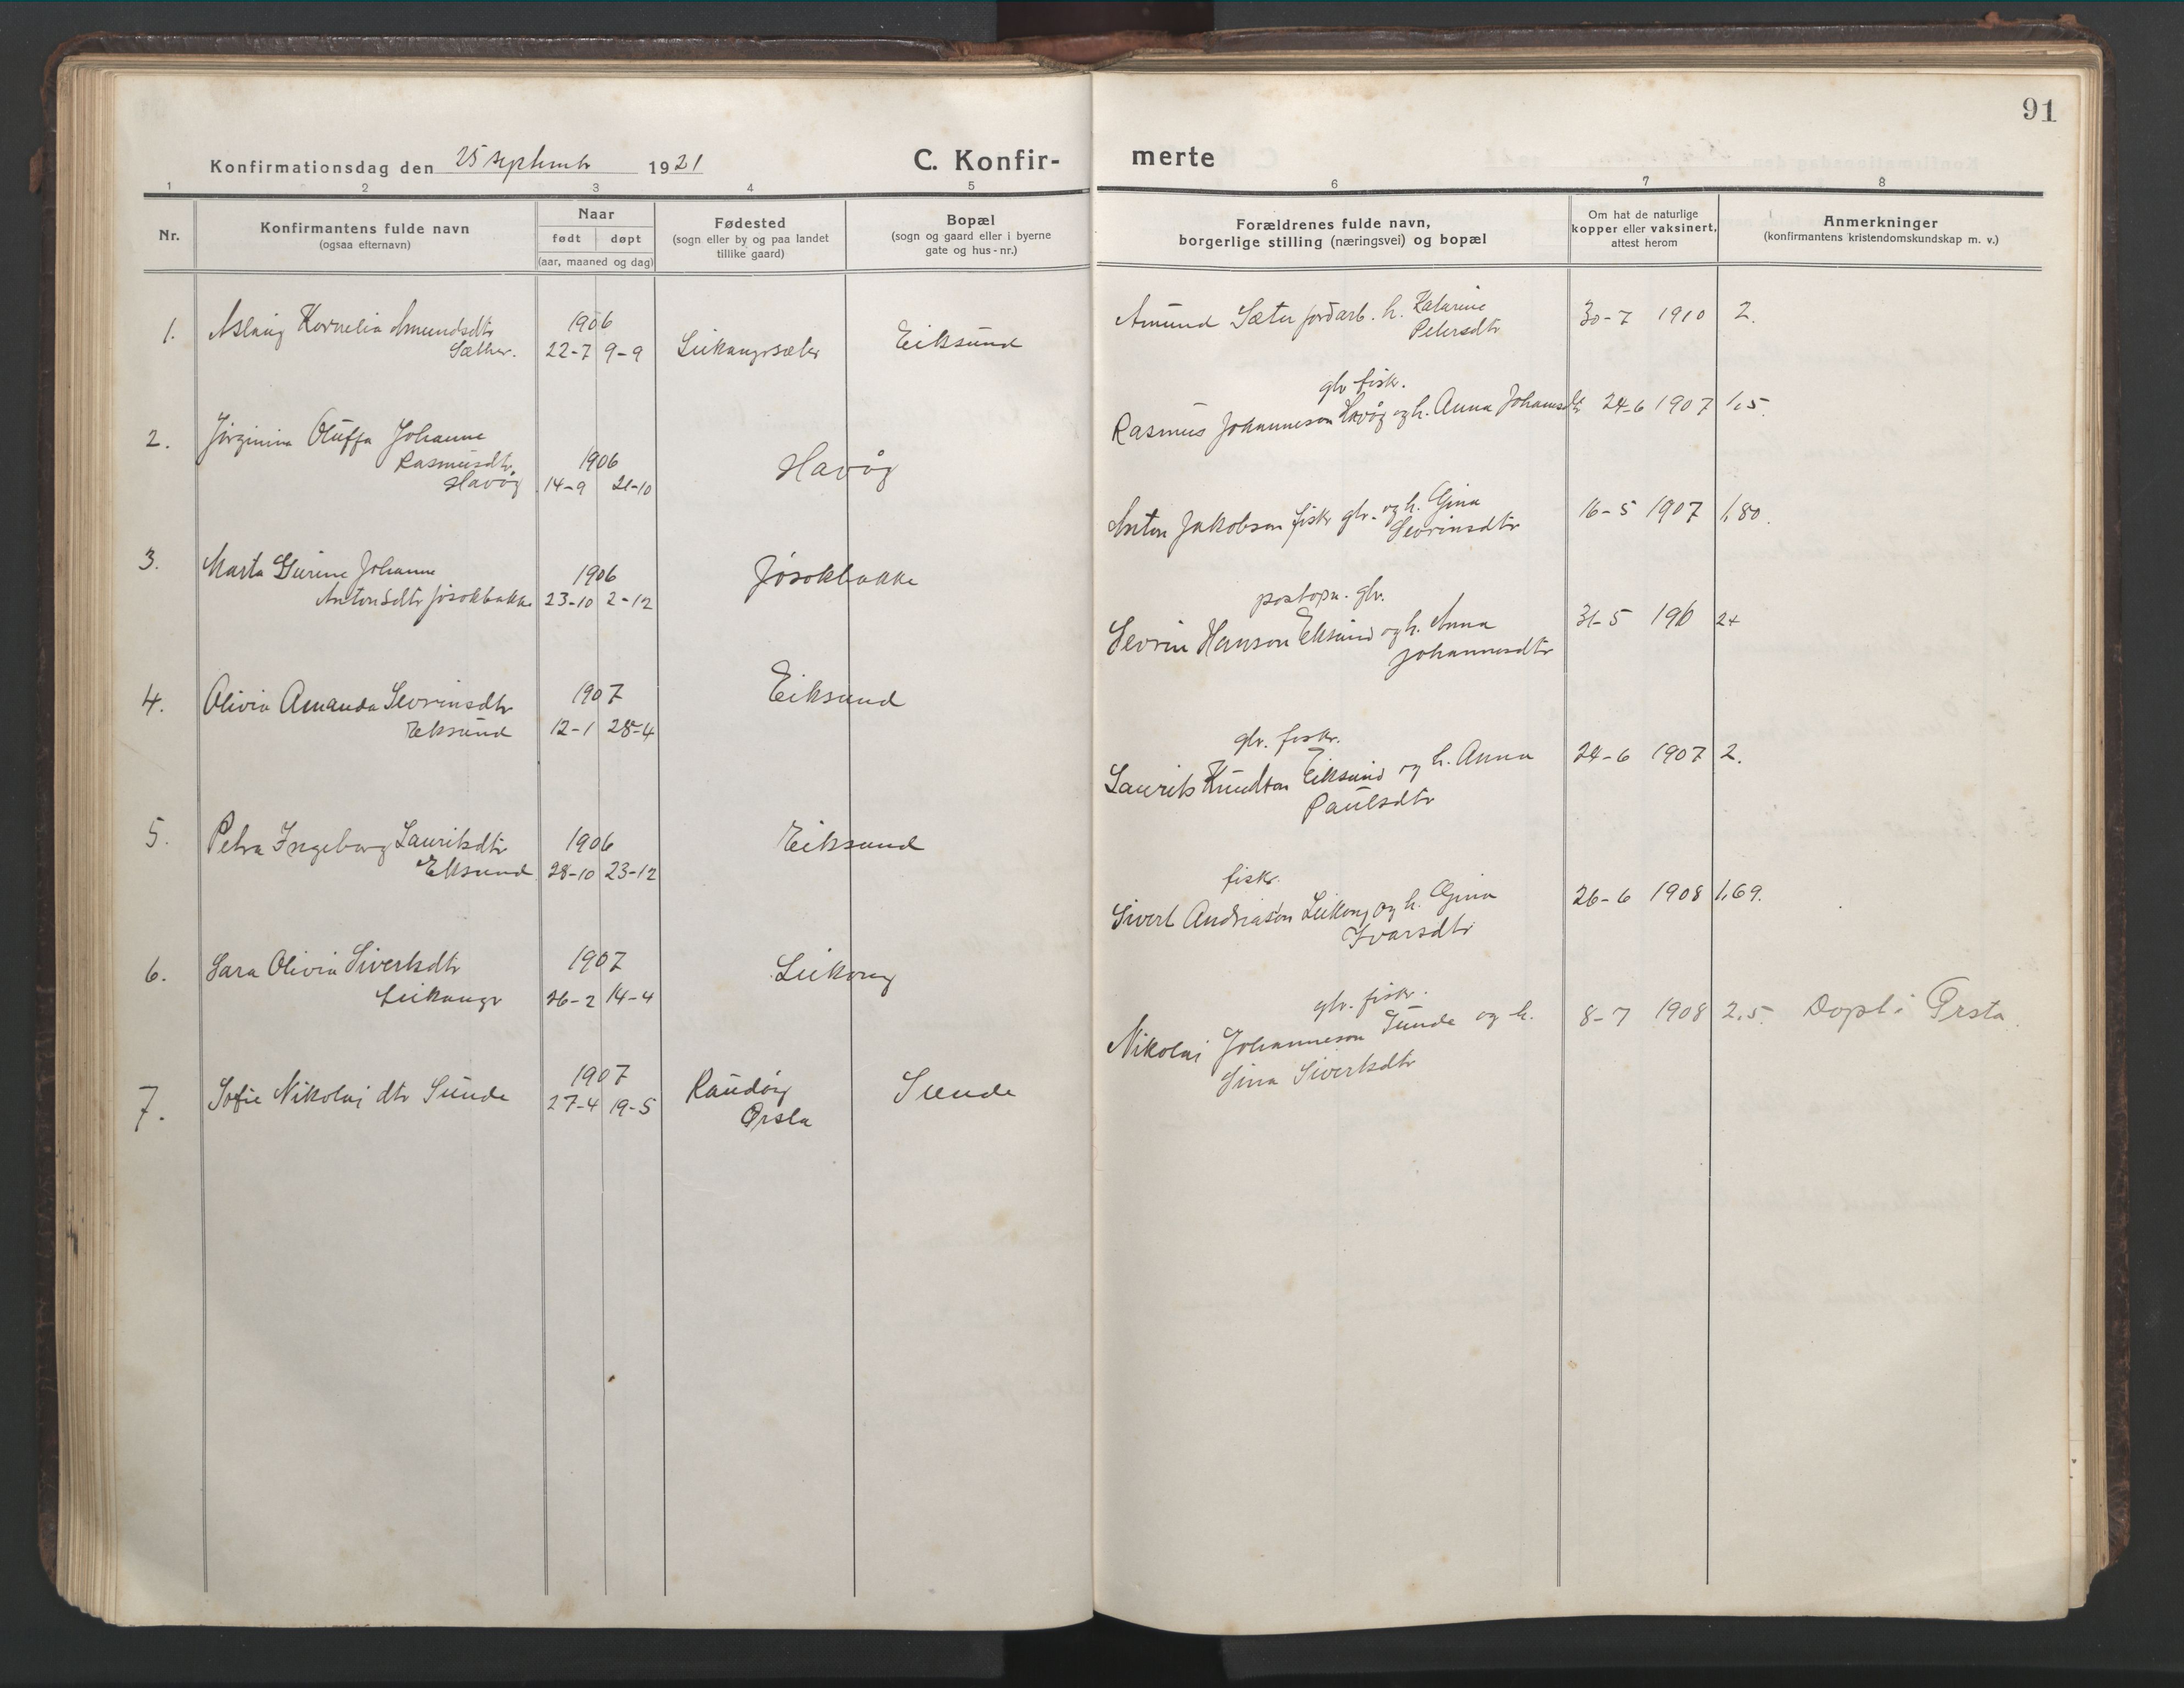 91
Konfirmationsdag den 25 septembr 1921
C. Konfir-
merte
1 2 3 4 5 6 7 8
Nr.
Konfirmantens fulde navn
(ogsaa efternavn)
Naar
født døpt
(aar, maaned og dag)
Fødested
(sogn eller by og paa landet
tillike gaard)
Bopæl
(sogn og gaard eller i byerne
gate og hus-nr.)
Forældrenes fulde navn,
borgerlige stilling (næringsvei) og bopæl
Om hat de naturlige
kopper eller vaksinert,
attest herom
Anmerkninger
(konfirmantens kristendomskundskap m. v.)
1. Aslaug Kornelia Amundsdtr 1906
Sæther. 22-7 9-9 Leikangrsæter Eiksund
Amund Sæter jordarb. h. Katarine 30-7 1910 2.
Petersdtr
2. Jørginina Oluffa Johanne
Rasmusdtr. 1906
Havåg 14-9 21-10 Havåg
gbr fisk.
Rasmus Johanneson Havåg og h. Anna Johansdtr 24-6 1907 1,5.
3. Marta Gurine Johanne 1906 Jøsokbakke
Antonsdtr Jøsokbakke 23-10 2-12
Anton Jakobson fiskr gbr. og h. Gina 16-5 1907 1,80.
Sevrinsdtr
4. Olivia Amanda Sevrinsdtr 1907 Eiksund
Eksund 12-1 28-4
postopn. gbr.
Sevrin Hanson Eksund og h. Anna 31-5 190 24
Johannesdtr
5. Petra Ingeborg Lauritsdtr 1906 Eiksund
Eksund 28-10 23-12
gbr. fiskr.
Laurits Knudson Eiksund og h. Anna 24-6 1907 2.
Paulsdtr
6. Sara Olivia Sivertsdtr 1907 Leikong
Leikangr 26-2 14-4
fiskr.
Sivert Andriasøn Leikong og h. Gina 26-6 1908 1,69.
Ivarsdtr
7. Sofie Nikolaj dtr Sunde 1907 Raudøy Sunde
27-4 19-5 Ørsta
gbr. fiskr.
Nikolai Johanneson Sunde og h. 8-7 1908 2,5. Døpt i Ørsta.
Gina Sivertsdtr